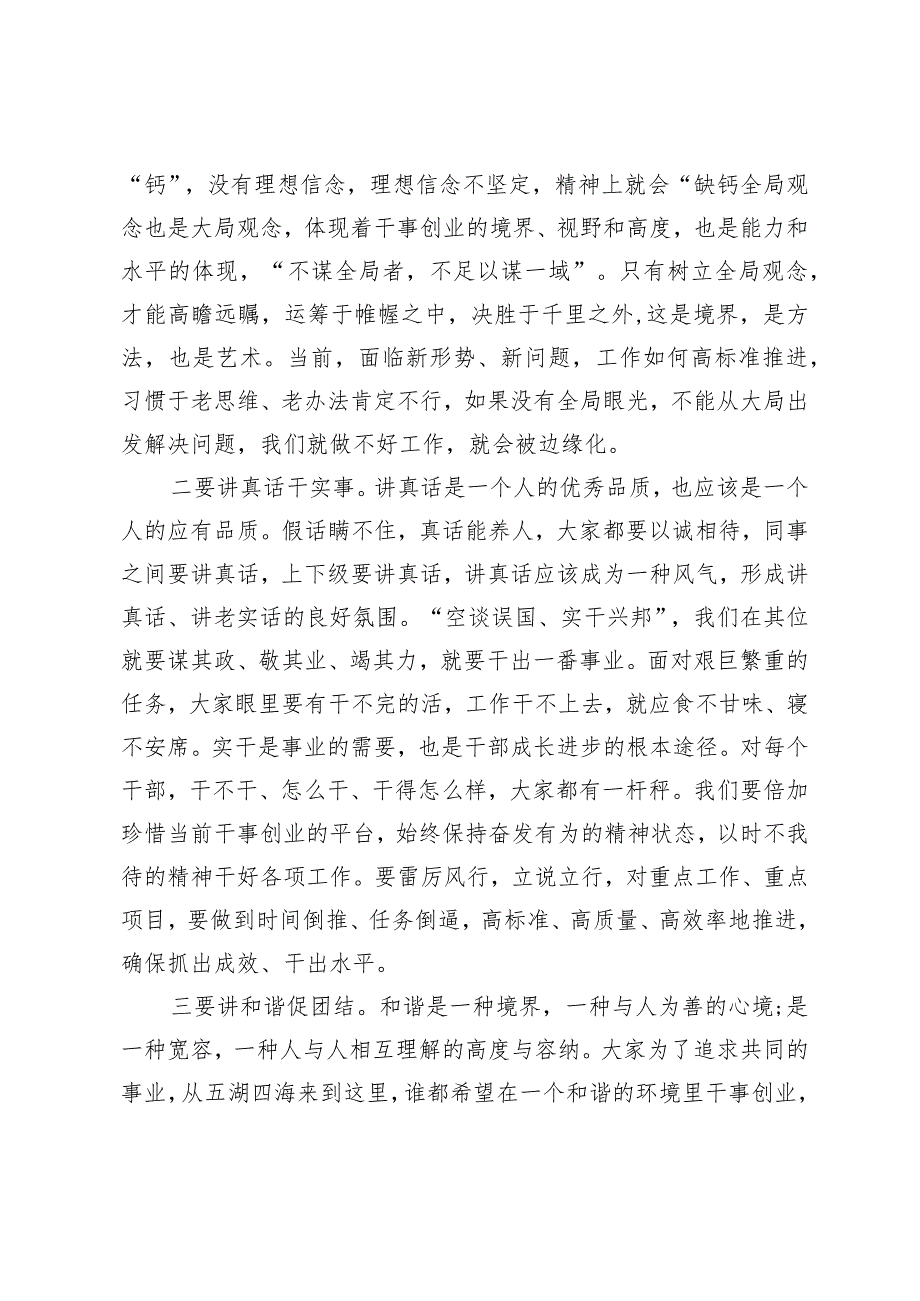 “钙”，没有理想信念，理想信念不坚定，精神上就会“缺钙全局观
念也是大局观念，体现着干事创业的境界、视野和高度，也是能力和
水平的体现，“不谋全局者，不足以谋一域”。只有树立全局观念，
才能高瞻远瞩，运筹于帷幄之中，决胜于千里之外,这是境界，是方
法，也是艺术。当前，面临新形势、新问题，工作如何高标准推进，
习惯于老思维、老办法肯定不行，如果没有全局眼光，不能从大局出
发解决问题，我们就做不好工作，就会被边缘化。
二要讲真话干实事。讲真话是一个人的优秀品质，也应该是一个
人的应有品质。假话瞒不住，真话能养人，大家都要以诚相待，同事
之间要讲真话，上下级要讲真话，讲真话应该成为一种风气，形成讲
真话、讲老实话的良好氛围。“空谈误国、实干兴邦”，我们在其位
就要谋其政、敬其业、竭其力，就要干出一番事业。面对艰巨繁重的
任务，大家眼里要有干不完的活，工作干不上去，就应食不甘味、寝
不安席。实干是事业的需要，也是干部成长进步的根本途径。对每个
干部，干不干、怎么干、干得怎么样，大家都有一杆秤。我们要倍加
珍惜当前干事创业的平台，始终保持奋发有为的精神状态，以时不我
待的精神干好各项工作。要雷厉风行，立说立行，对重点工作、重点
项目，要做到时间倒推、任务倒逼，高标准、高质量、高效率地推进，
确保抓出成效、干出水平。
三要讲和谐促团结。和谐是一种境界，一种与人为善的心境;是
一种宽容，一种人与人相互理解的高度与容纳。大家为了追求共同的
事业，从五湖四海来到这里，谁都希望在一个和谐的环境里干事创业，